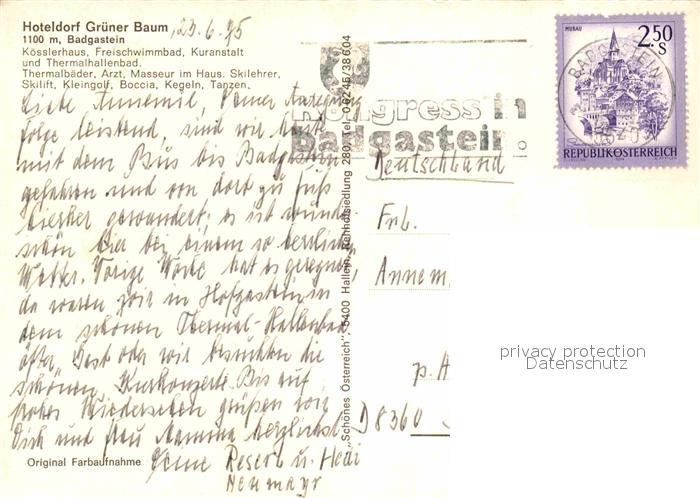 Hoteldorf Grüner Baum, 23.6.75
1100 m, Badgastein
Kösslerhaus, Freischwimmbad, Kuranstalt
und Thermalhallenbad.
Thermalbäder, Arzt, Masseur im Haus. Skilehrer,
Skilift, Kleingolf, Boccia, Kegeln, Tanzen.
Liebe Annemie, Deiner Anregung
folge leistend, sind wir heute
mit dem Bus bis Badgastein
gefahren und von dort zu Fuß
hierher gewandert; es ist wunder-
schön hier bei einem so herrlichen
Wetter. Vorige Woche hat es geregnet,
da waren wir in Hofgastein in
dem schönen Thermal-Hallenbad
öfter Gast oder wir besuchten die
schönen Kurkonzerte. Bis auf
frohes Wiedersehen grüßen wir
Dich und Frau Mamma herzlichst
Deine Reserl u. Hedi
Neumayr
Original Farbaufnahme
"Schönes Österreich", 5400 Hallein, Rehhofsiedlung 280, Tel 06245/38604
Kongress in
Badgastein.
MURAU
2.50
S
REPUBLIK ÖSTERREICH
BADGASTEIN
Deutschland
Frl.
Annem
p. A
D 8360
privacy protection
Datenschutz